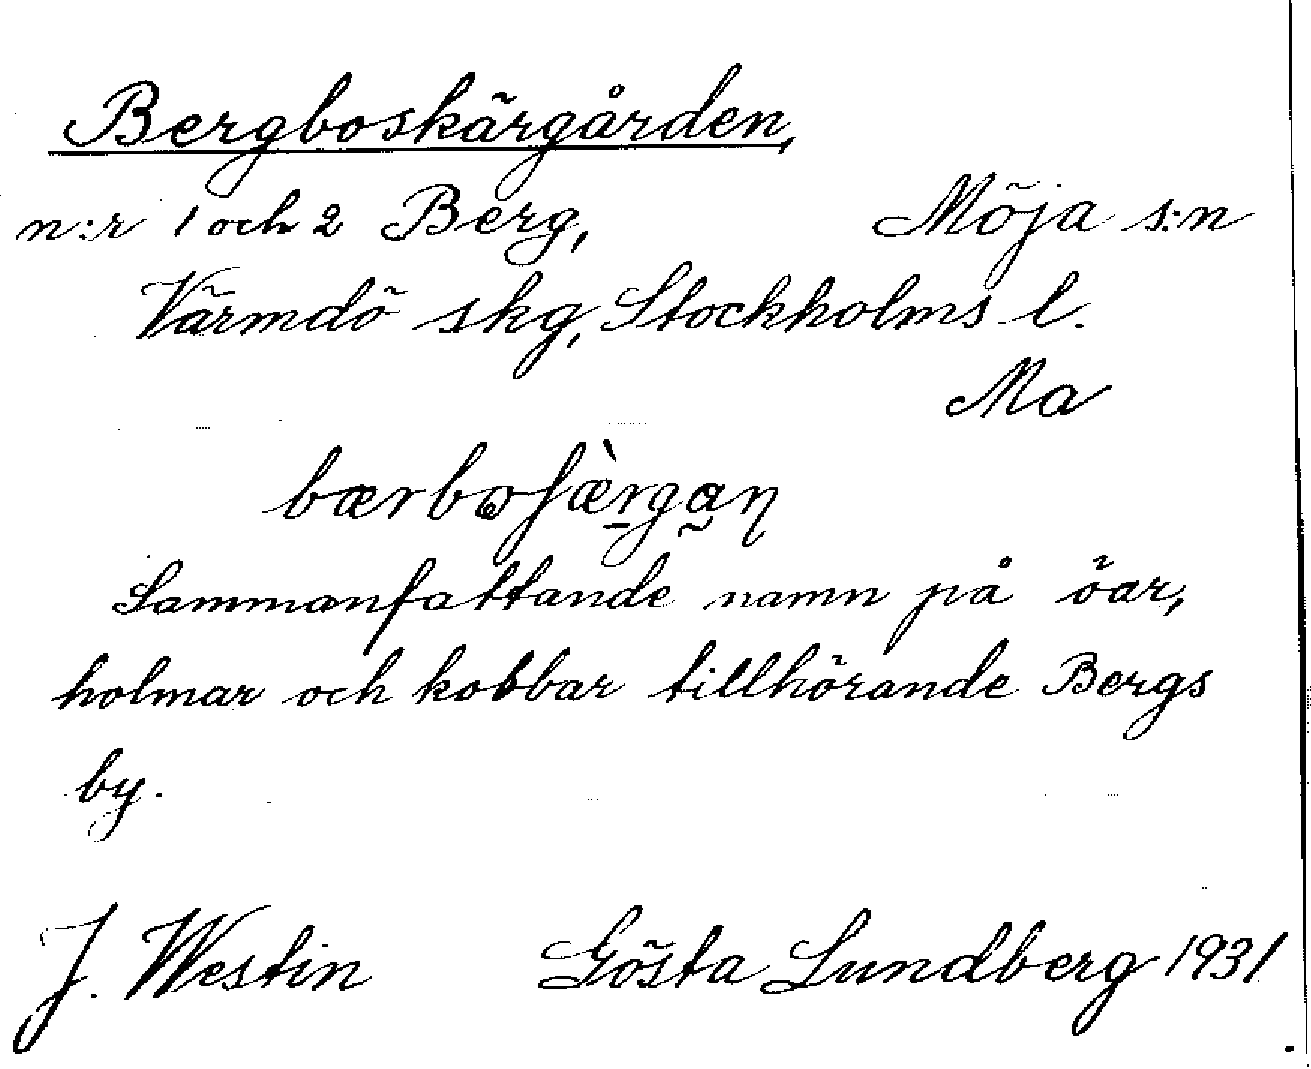 Bergboskärgården,
n:r 1 och 2 Berg, Möja s:n
Värmdö skg, Stockholms l.
Ma
Sammanfattande namn på öar,
holmar och kobbar tillhörande Bergs
by.
J. Westin Gösta Lundberg 1931